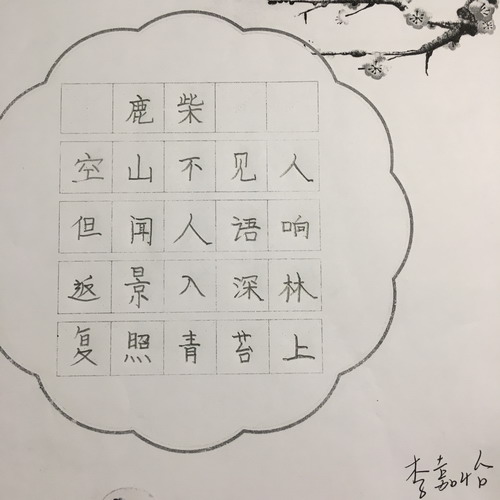 鹿柴
空山不见人
但闻人语响
返景入深林
复照青苔上
李嘉怡